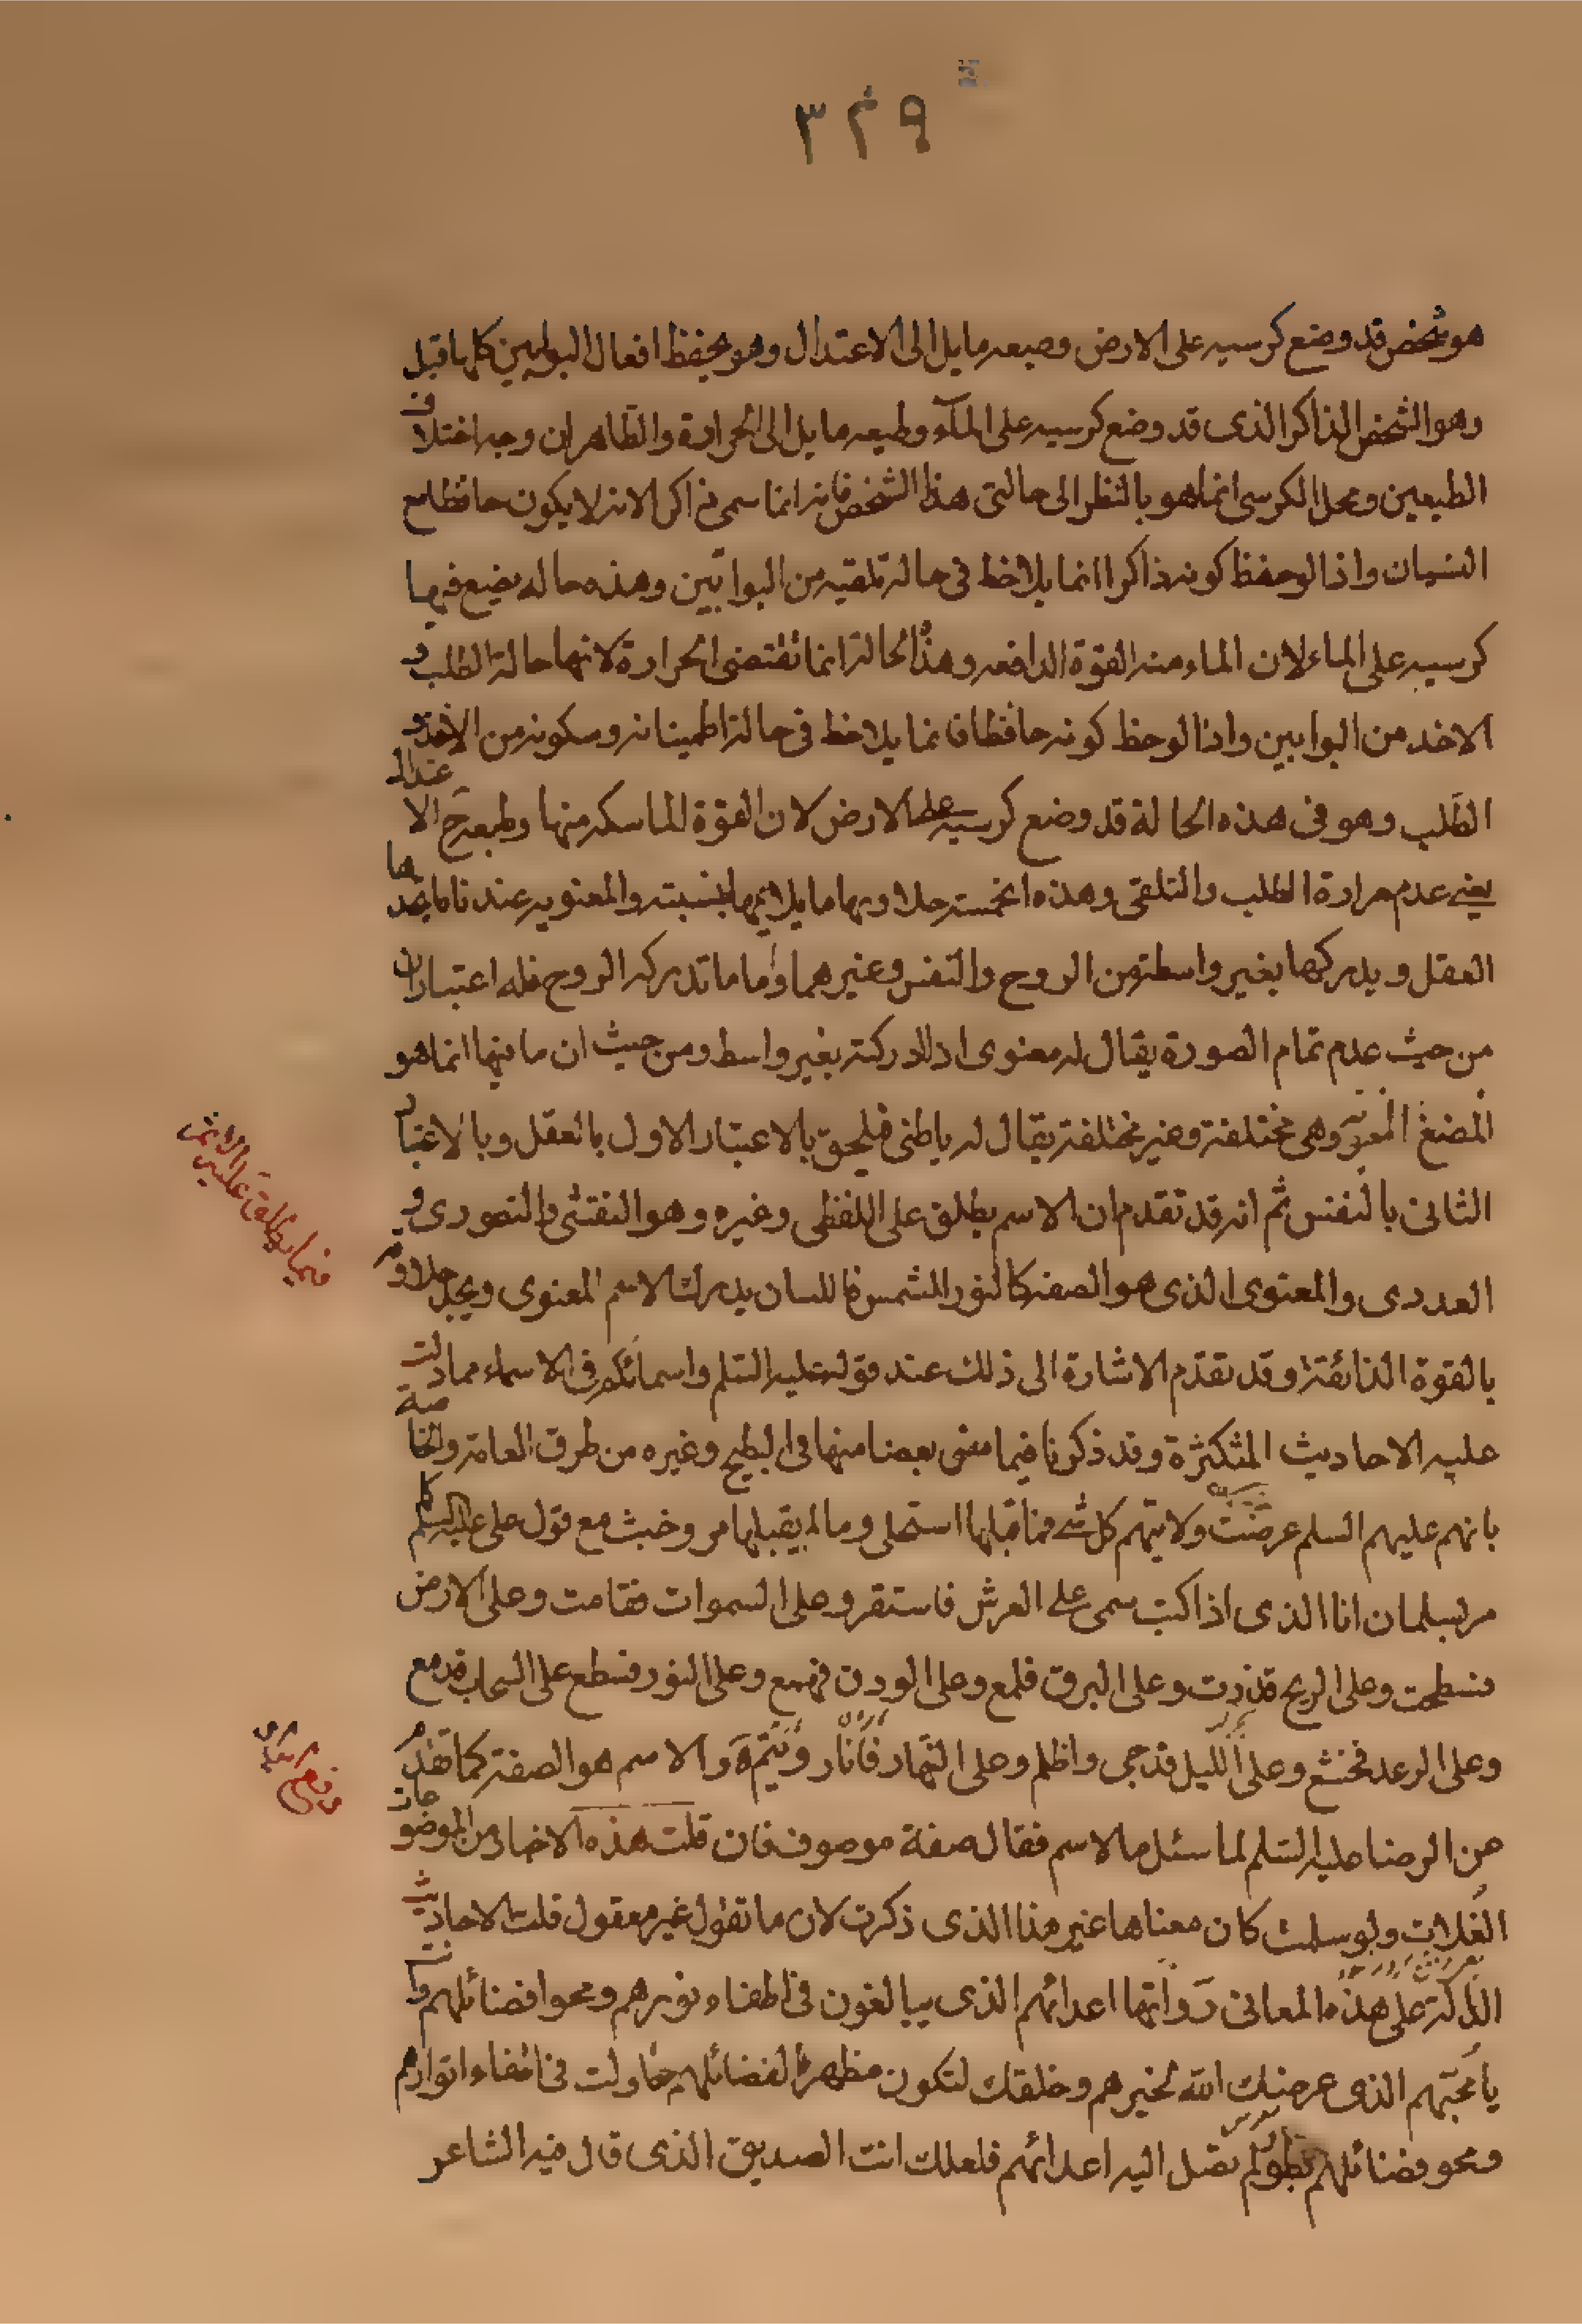 ٣٢٩
هو شخص قد وضع كرسيه على الارض وطبعه مايل الى الاعتدال وهو يحفظ افعال البوابين كلها قبل
وهو الشخص الذاكر الذى قد وضع كرسيه على الماء وطبعه مايل الى الحرارة والظاهر ان وجه اختلاف
الطبيعين ومحل الكرسى انما هو بالنظر الى حالتى هذا الشخص فانه انما سمى ذاكرا لانه لا يكون حافظا مع
النسيان واذا لوحظ كونه ذاكرا انما يلاحظ فى حالة تلقيه من البوابين وهذه حاله يضع فيها
كرسيه على الماء لان الماء منه القوة الدافعه وهذه الحالة انما تقتضى الحرارة لانها حالة الطلب و
الاخذ من البوابين واذا لوحظ كونه حافظا فانما يلاحظ فى حالة اطمينانه وسكونه من الاخذ و
الطلب وهو فى هذه الحالة قد وضع كرسيه على الارض لان القوة الماسكه منها وطبعه ح الاعتدال
يعنى عدم حرارة الطلب والتلقى وهذه الخمسة حلاوتها ما يلايمها بنسبته والمعنويه عندنا ما يقصدها
العقل ويدركها بغير واسطة من الروح والنفس وغيرهما واما ما تدركه الروح فله اعتباران
من حيث عدم تمام الصورة يقال له معنوى اذا ادركته بغير واسطه ومن حيث ان ما فيها انما هو
المضغ وهى مختلفة وغير مختلفة يقال له باطنى فيلحق بالاعتبار الاول بالعقل وبالاعتبار
الثانى بالنفس ثم انه قد تقدم ان الاسم يطلق على اللفظى وغيره وهو النقشى والتصورى و
العددى والمعنوى الذى هو الصفة كالنور للشمس فاللسان يدرك الاسم المعنوى ويجد حلاوته
بالقوة الذائقة وقد تقدم الاشارة الى ذلك عند قوله عليه السلم واسمائكم فى الاسماء مما دلت
عليه الاحاديث المتكثرة وقد ذكرنا فيما مضى بعضا منها فى البطيخ وغيره من طرق العامة والخاصة
بانهم عليهم السلم عرضت ولايتهم كل شئ فما قبلها استحلى وما لم يقبلها مر وخبث مع قول على عليه السلم
مر سلمان انا الذى اذا كتب سمى على العرش فاستقر وعلى السموات فقامت وعلى الارض
فسطحت وعلى الريح فذرت وعلى البرق فلمع وعلى الودق فهمع وعلى النور فسطع على السحاب فدمع
وعلى الرعد فخشع وعلى الليل فدجى واظلم وعلى النهار فانار وتبسم والاسم هو الصفة كما تقدم
عن الرضا عليه السلم لما سئل ما الاسم فقال صفة موصوف فان قلت هذه الاخبار من الموضوعات
الغلات ولو سلمت كان معناها غير هذا الذى ذكرت لان ما تقول غير معقول قلت الاحاديث
الدالة على هذه المعانى رواتها اعدائهم الذى يبالغون فى اطفاء نورهم ومحوا فضائلهم وانت
يا محبهم الذى عرضك الله لخيرهم وخلقك لتكون مظهرا لفضائلهم حاولت فى اخفاء انوارهم
ومحو فضائلهم بطور لم يصل اليه اعدائهم فلعلك انت الصديق الذى قال فيه الشاعر
فيما يطلق عليه الاسم